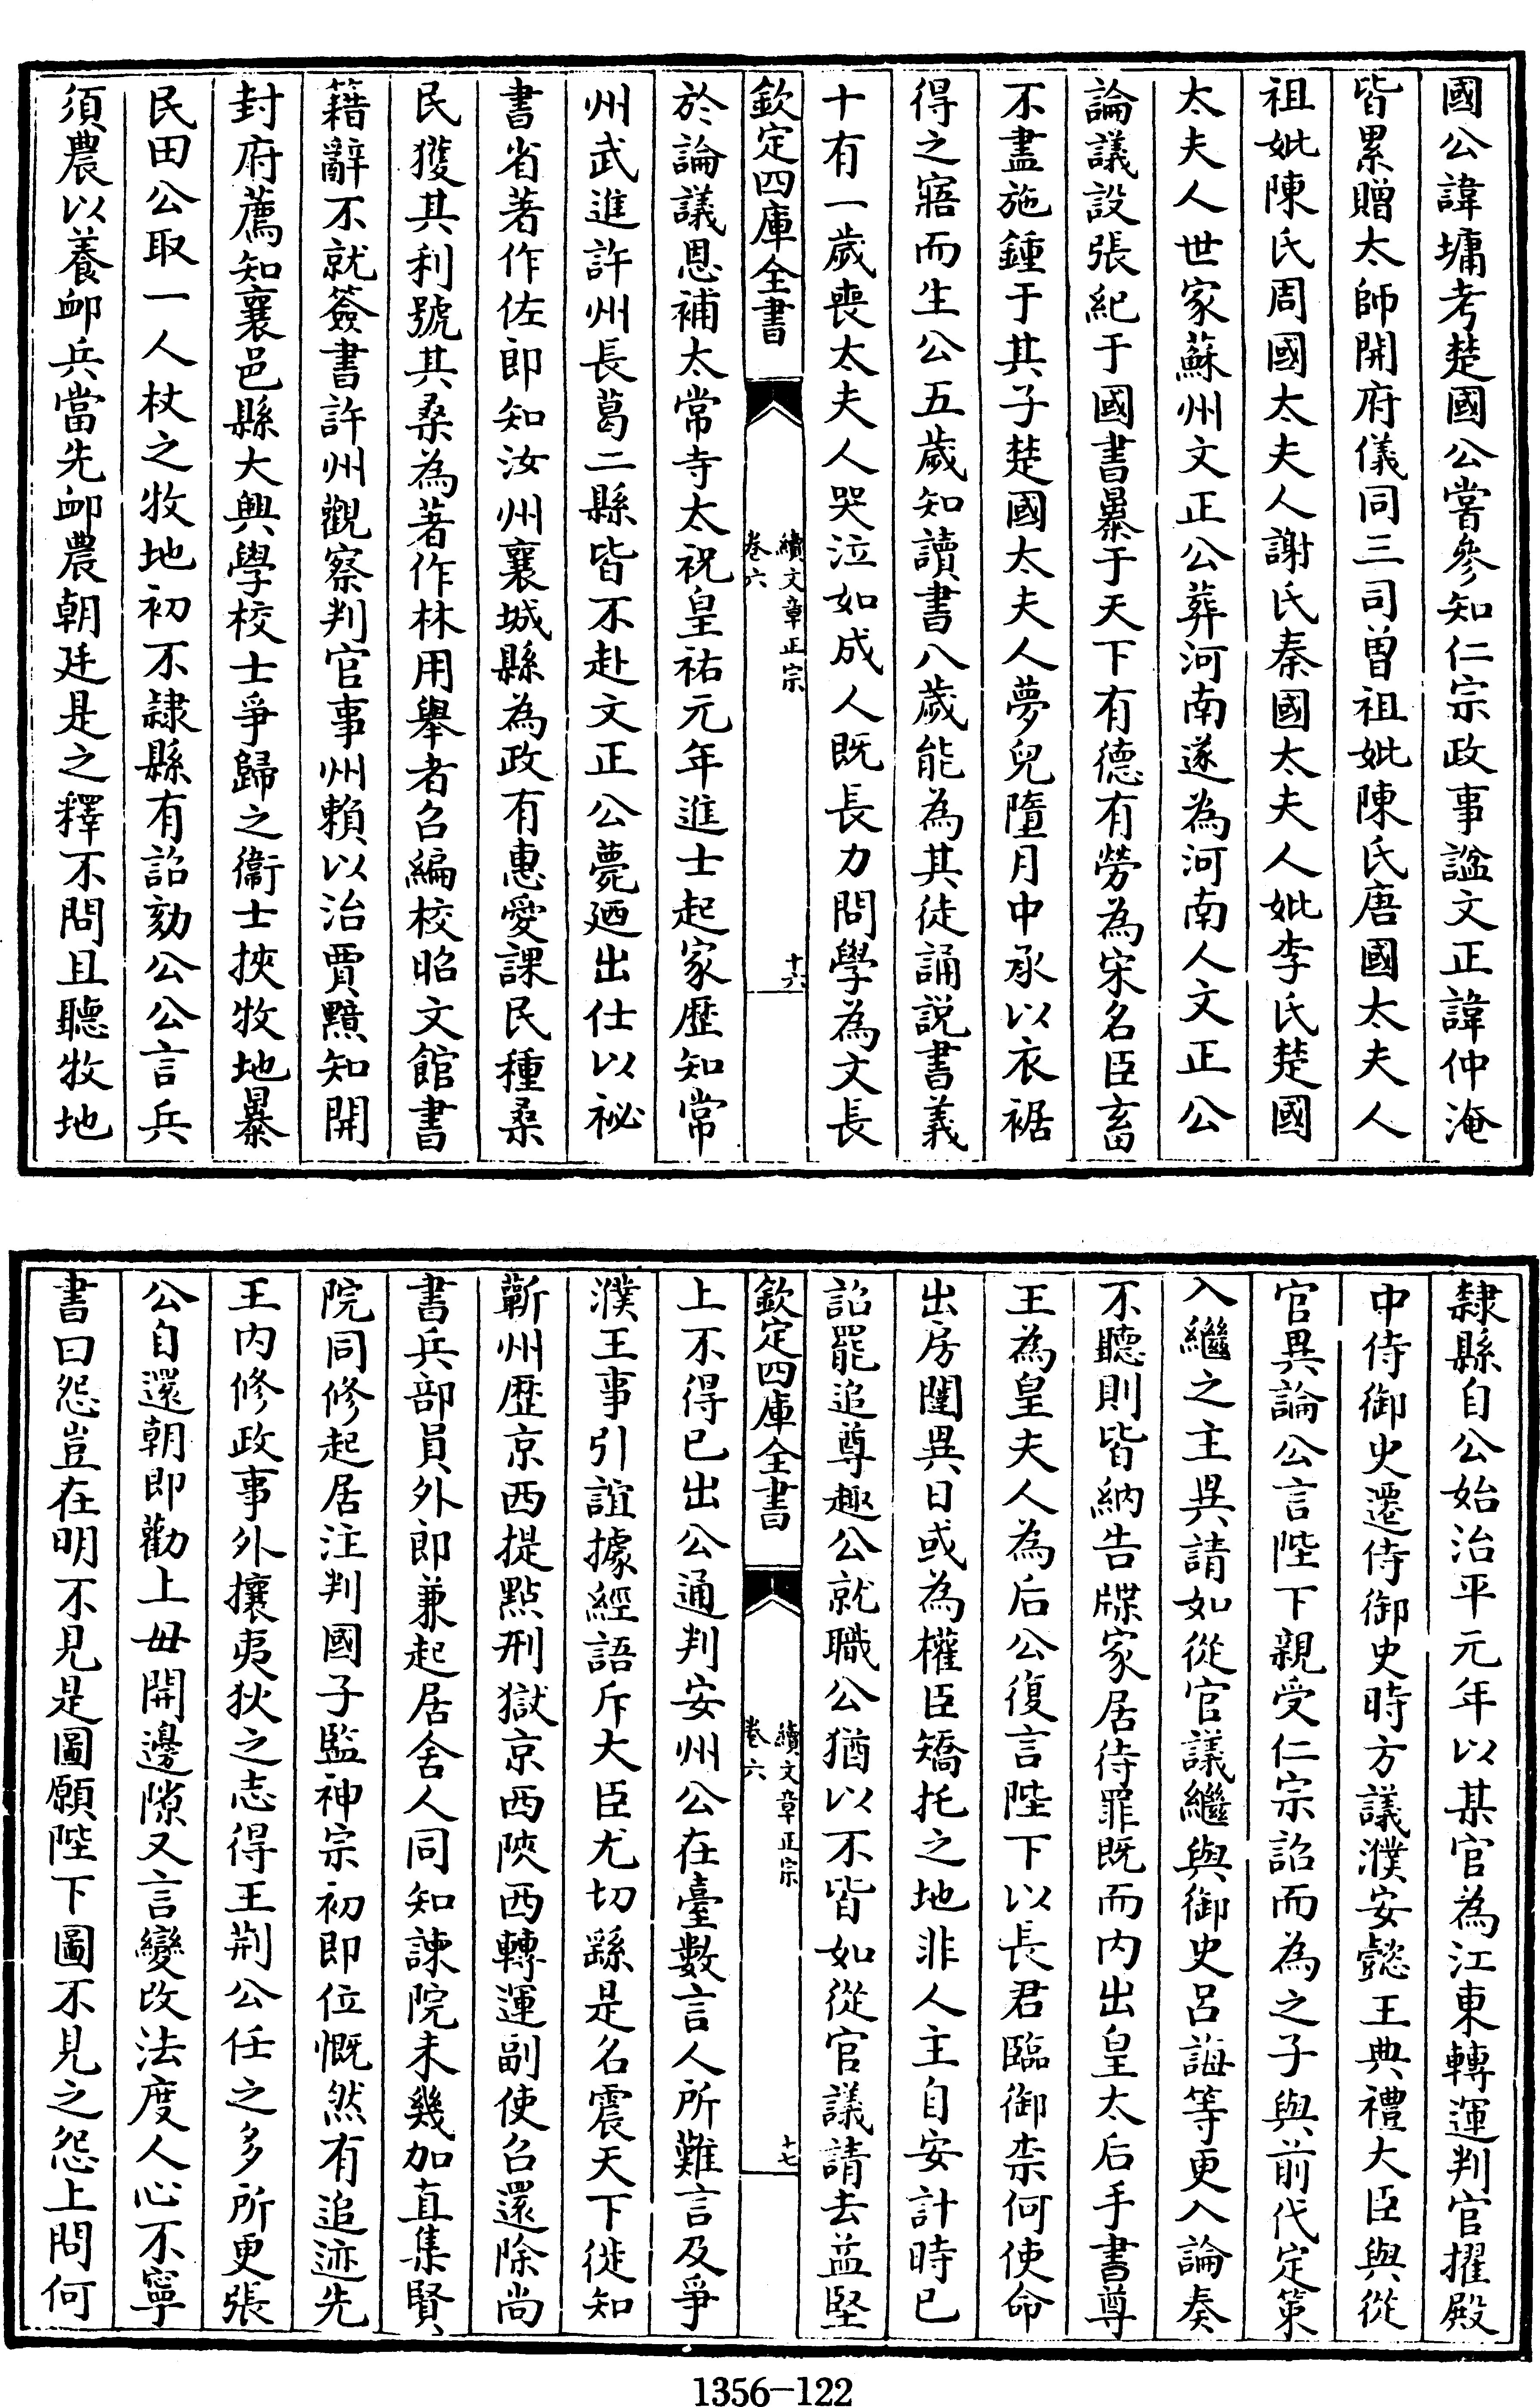 國公諱墉考楚國公嘗參知仁宗政事諡文正諱仲淹
皆累贈太師開府儀同三司曽祖妣陳氏唐國太夫人
祖妣陳氏周國太夫人謝氏秦國太夫人妣李氏楚國
太夫人世家蘇州文正公葬河南遂為河南人文正公
論議設張紀于國書暴于天下有德有勞為宋名臣畜
不盡施鍾于其子楚國太夫人夢兒墮月中承以衣裾
得之寤而生公五歲知讀書八歲能為其徒誦説書義
十有一歲喪太夫人哭泣如成人既長力問學為文長
欽定四庫全書
續文章正宗
卷六
十六
於論議恩補太常寺太祝皇祐元年進士起家歴知常
州武進許州長葛二縣皆不赴文正公薨廼出仕以祕
書省著作佐郎知汝州襄城縣為政有惠愛課民種桑
民獲其利號其桑為著作林用舉者召編校昭文館書
籍辭不就簽書許州觀察判官事州賴以治賈黯知開
封府薦知襄邑縣大興學校士爭歸之衞士挾牧地暴
民田公取一人杖之牧地初不隷縣有詔劾公公言兵
須農以養䘏兵當先䘏農朝廷是之釋不問且聽牧地
隸縣自公始治平元年以某官為江東轉運判官擢殿
中侍御史遷侍御史時方議濮安懿王典禮大臣與從
官異論公言陛下親受仁宗詔而為之子與前代定策
入繼之主異請如從官議繼與御史呂誨等更入論奏
不聽則皆納告牒家居待罪既而内出皇太后手書尊
王為皇夫人為后公復言陛下以長君臨御柰何使命
出房闥異日或為權臣矯托之地非人主自安計時已
詔罷追尊趣公就職公猶以不皆如從官議請去益堅
欽定四庫全書
續文章正宗
卷六
十七
上不得已出公通判安州公在臺數言人所難言及爭
濮王事引誼據經語斥大臣尤切繇是名震天下徙知
蘄州歴京西提㸃刑獄京西陜西轉運副使召還除尚
書兵部員外郎兼起居舍人同知諫院未幾加直集賢
院同修起居注判國子監神宗初即位慨然有追迹先
王内修政事外攘夷狄之志得王荆公任之多所更張
公自還朝即勸上毋開邊隙又言變改法度人心不寧
書曰怨豈在明不見是圖願陛下圖不見之怨上問何
1356—122